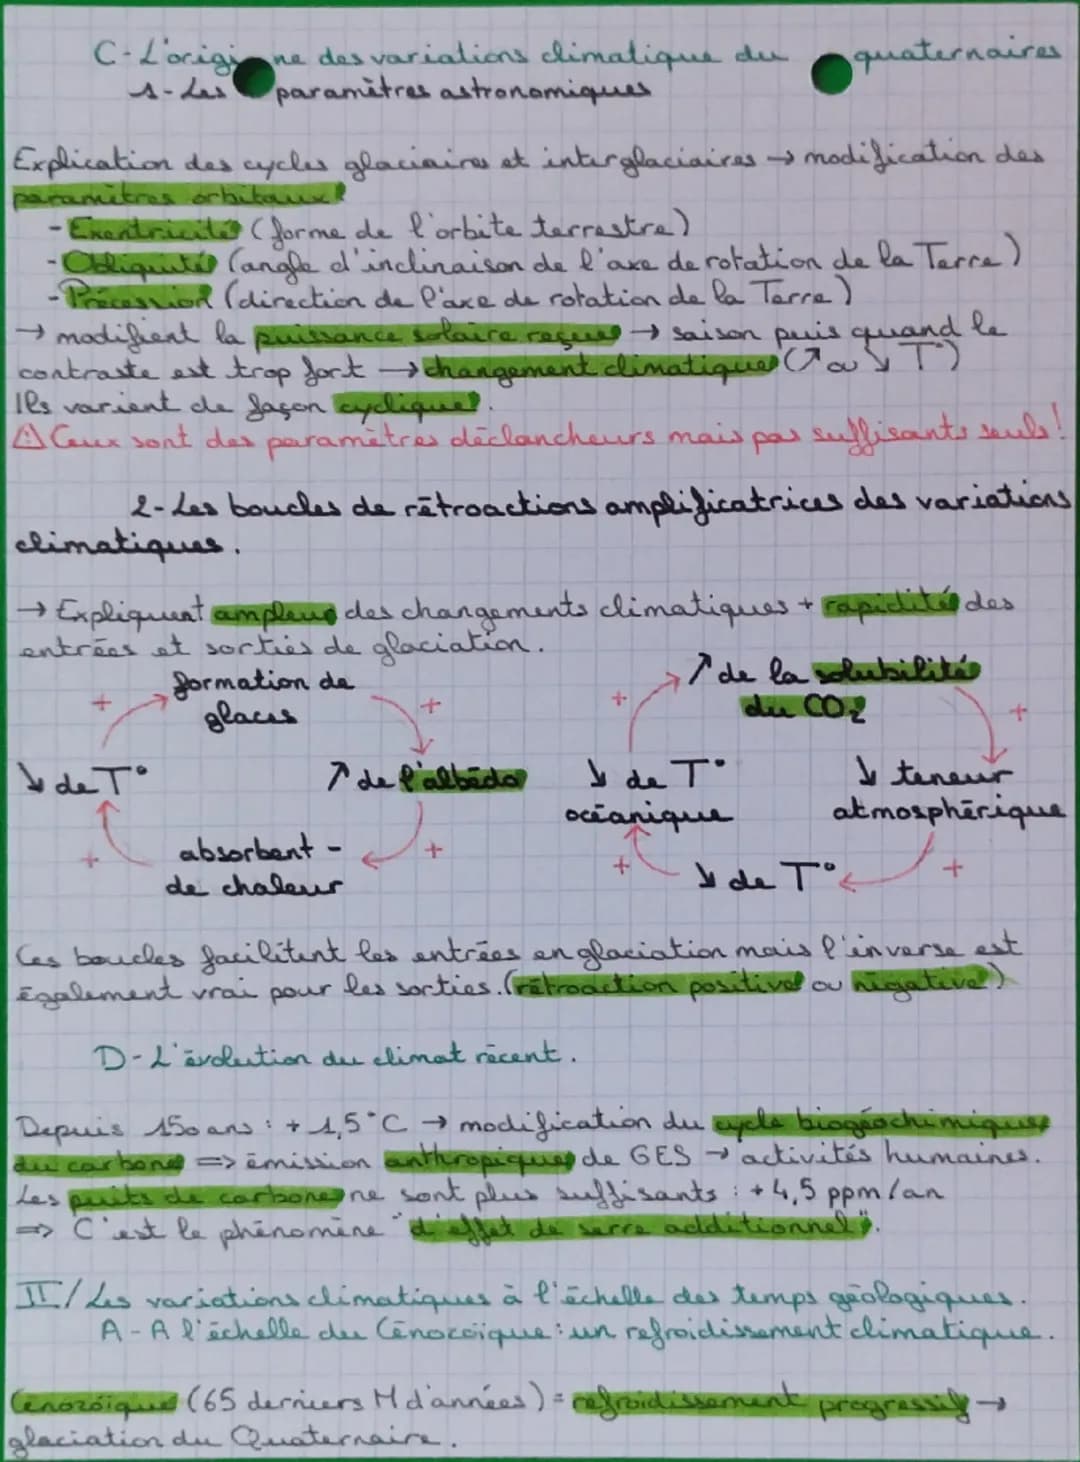 C - L'origine des variations climatique du quaternaires
1 - Les paramètres astronomiques
Explication des cycles glaciaires et interglaciaires → modification des
paramètres orbitaux
- Exentricité (forme de l'orbite terrestre)
- Obliquité (angle d'inclinaison de l'axe de rotation de la Terre)
- Précession (direction de l'axe de rotation de la Terre)
→ modifient la puissance solaire reçue → saison puis quand le
contraste est trop fort → changement climatique (↗ ou ↘ T°)
Ils varient de façon cyclique.
⚠ Ceux sont des paramètres déclancheurs mais pas suffisants seuls !
2 - Les boucles de rétroactions amplificatrices des variations
climatiques.
→ Expliquent ampleur des changements climatiques + rapidité des
entrées et sorties de glaciation.
formation de
glaces
+
+
↘ de T°
↗ de l'albédo
absorbent -
de chaleur
+
+
↗ de la solubilité
du CO2
+
+
↘ de T°
océanique
↘ teneur
atmosphérique
↘ de T°
+
+
Ces boucles facilitent les entrées en glaciation mais l'inverse est
également vrai pour les sorties. (rétroaction positive ou négative)
D - L'évolution du climat récent.
Depuis 150 ans : + 1,5°C → modification du cycle biogéochimique
du carbone => émission anthropique de GES → activités humaines.
Les puits de carbone ne sont plus suffisants : + 4,5 ppm/an
=> C'est le phénomène "d'effet de serre additionnel".
II / Les variations climatiques à l'échelle des temps géologiques.
A - A l'échelle du Cénozoïque : un refroidissement climatique.
Cénozoïque (65 derniers M d'années) = refroidissement progressif →
glaciation du Quaternaire.